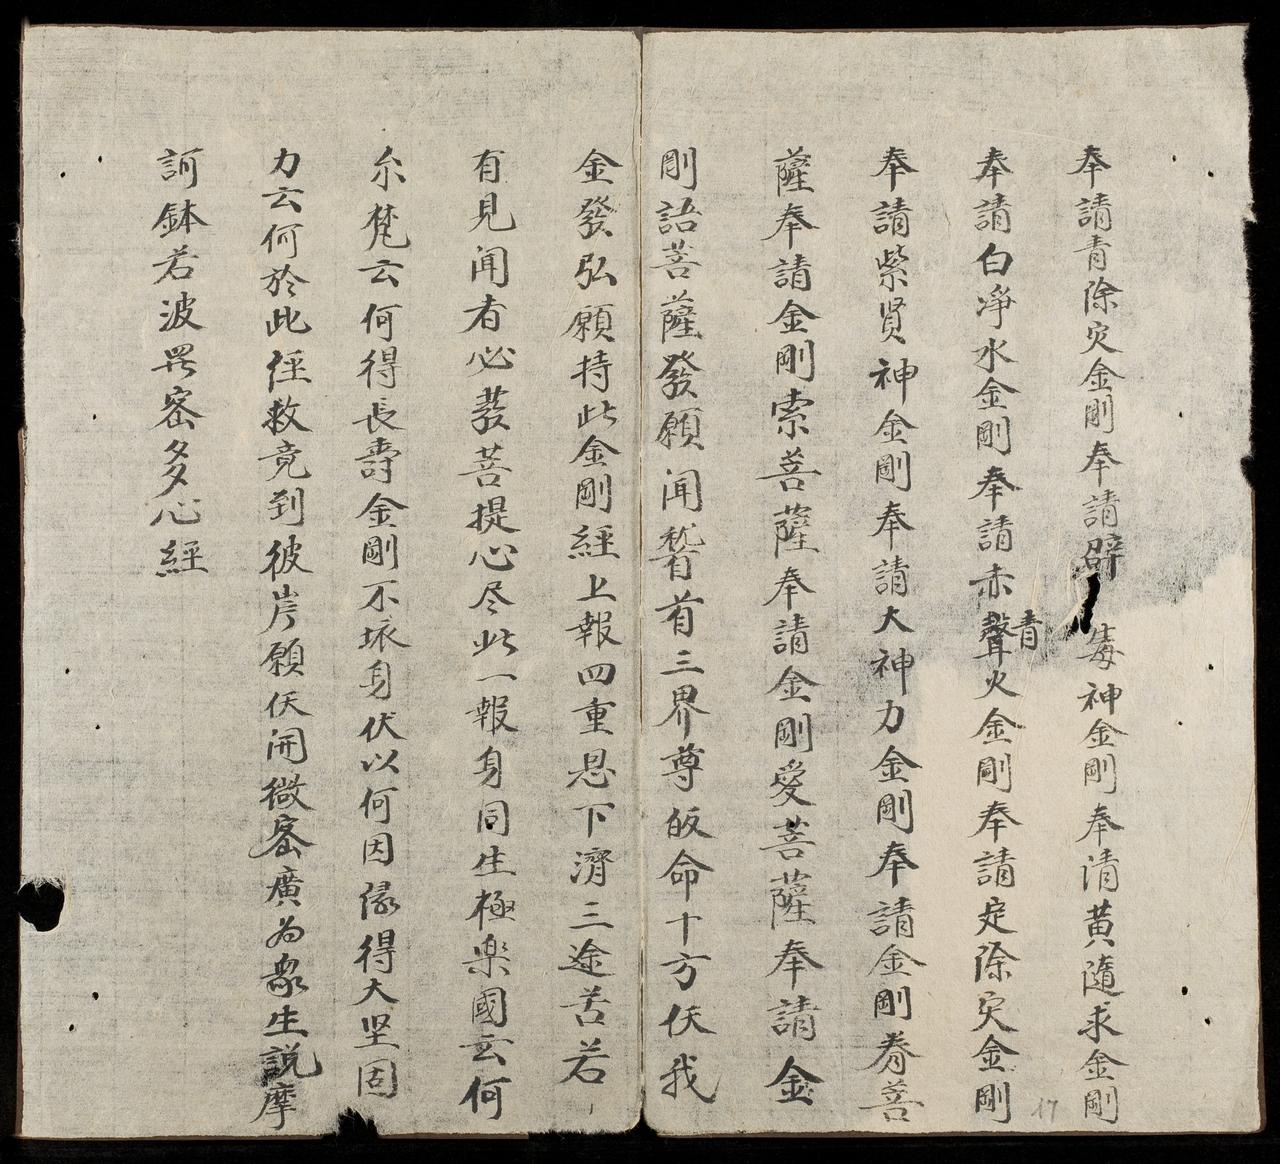 奉請青除灾金剛奉請辟毒神金剛奉清黄隨求金剛
奉請白净水金剛奉請赤聲青火金剛奉請㝎除灾金剛
奉請紫贤神金剛奉請大神力金剛奉請金剛眷菩
薩奉請金剛索菩薩奉請金剛愛菩薩奉請金
剛語菩薩發願闻稽首三界尊皈命十方仸我
金發弘願持此金剛經上報四重恩下濟三途苦若
有見闻者必發菩提心尽此一報身同生極楽國云何
尒梵云何得長壽金剛不壊身伏以何因縁得大坚固
力云何於此経救竟到彼岸願仸開微宻廣为衆生説摩
訶鉢若波罗宻多心經
17